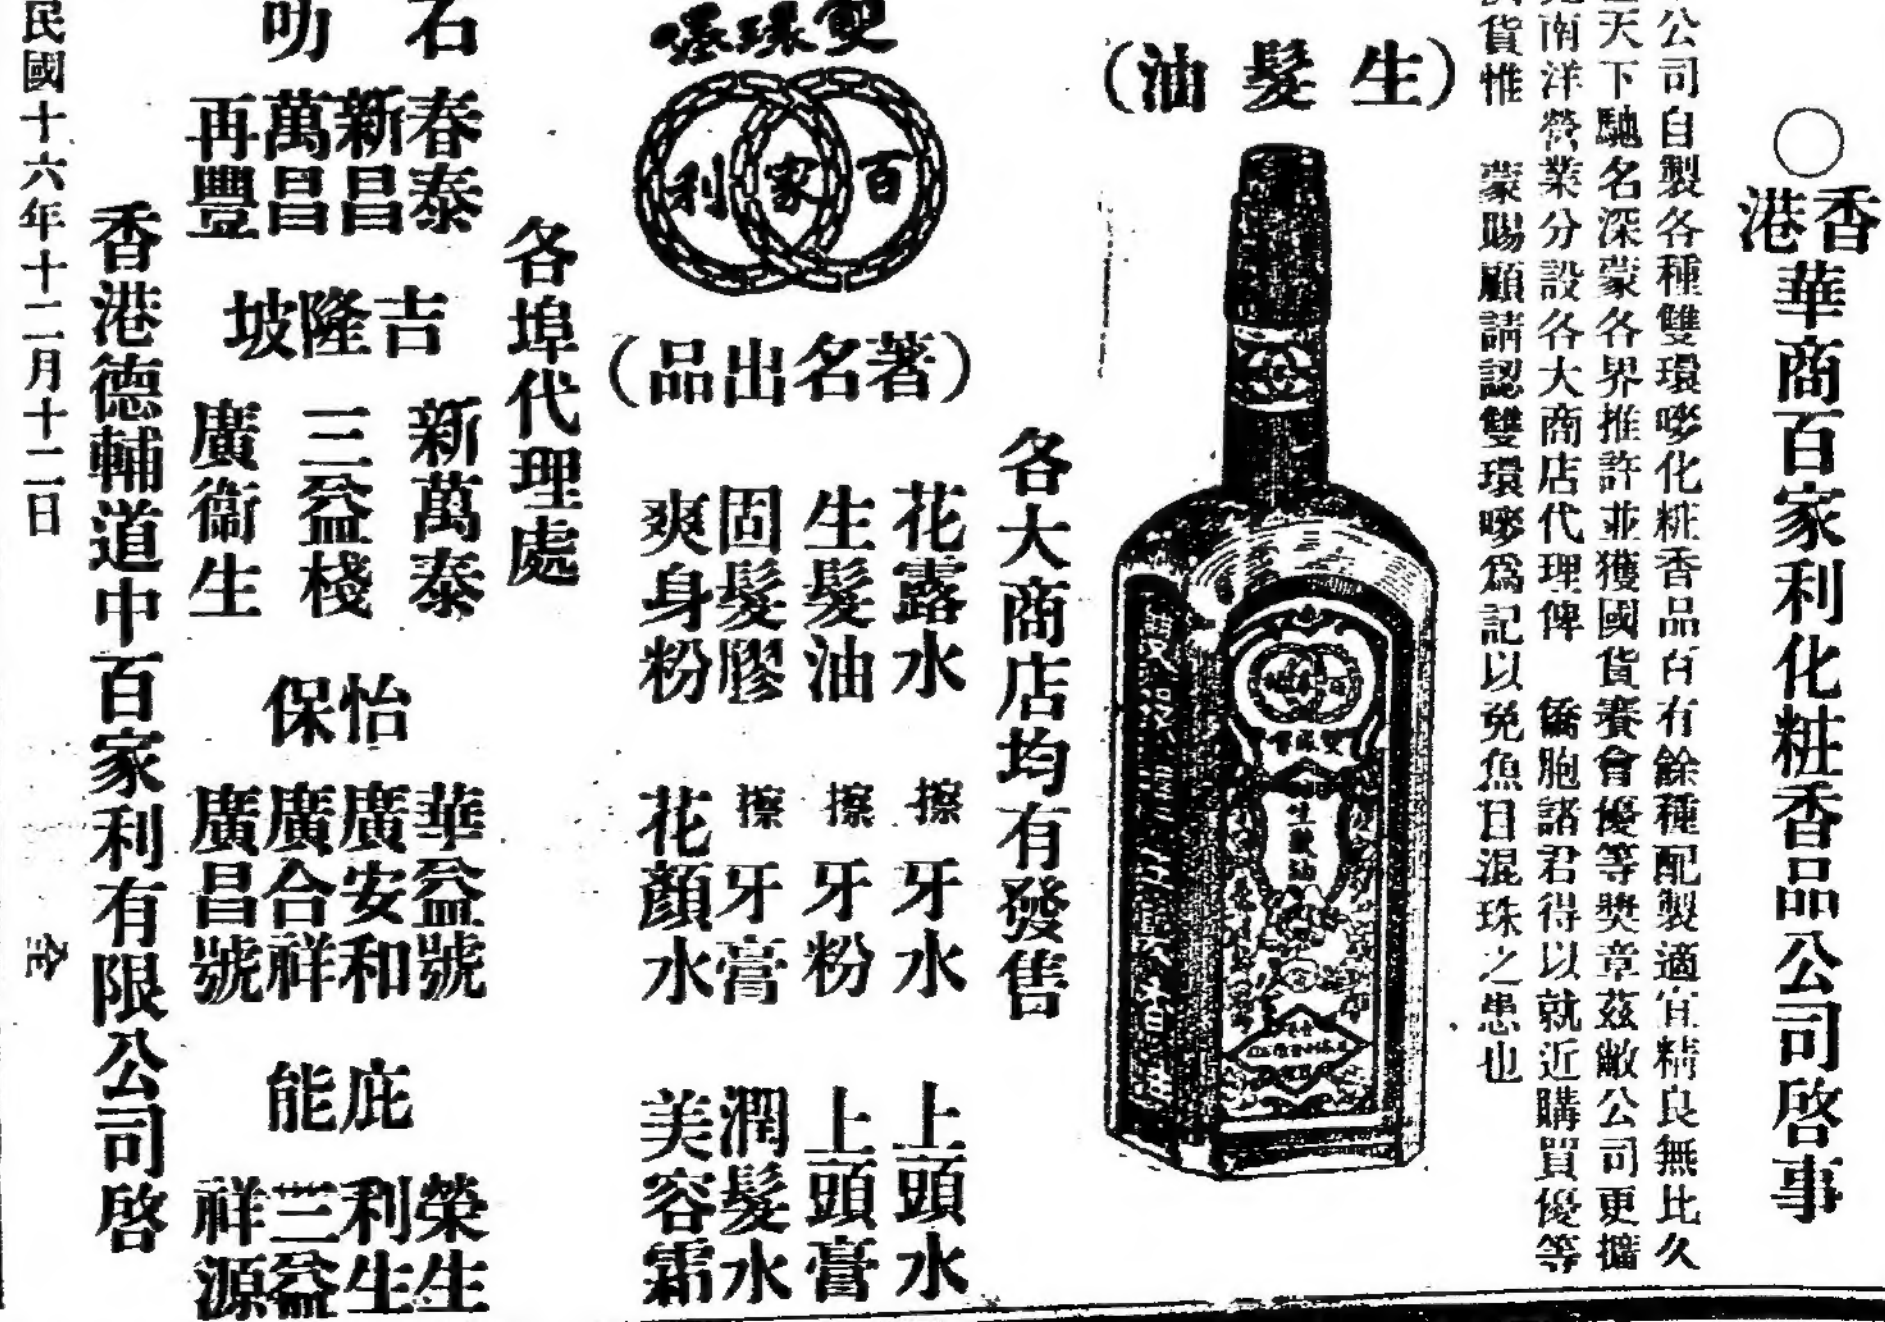 ○香港華商百家利化粧香品公司啓事
公司自製各種雙環嘜化粧香品百有餘種配製適宜精良無比久
天下馳名深蒙各界推許並獲國貨賽會優等奬章茲敝公司更擴
南洋營業分設各大商店代理俾 僑胞諸君得以就近購買優等
貨惟 蒙賜顧請認雙環嘜爲記以免魚目混珠之患也
(生髮油)
生髮油
各大商店均有發售
雙環嘜
百家利
(著名出品)
花露水 擦牙水 上頭水
生髮油 擦牙粉 上頭膏
固髮膠 擦牙膏 潤髮水
爽身粉 花顏水 美容霜
各埠代理處
石叻
春泰
新昌
萬昌
再豐
吉隆坡
新萬泰
三益棧
廣衞生
怡保
華益號
廣安和
廣合祥
廣昌號
庇能
榮生
利生
三益
祥源
香港德輔道中百家利有限公司啓
民國十六年十二月十二日